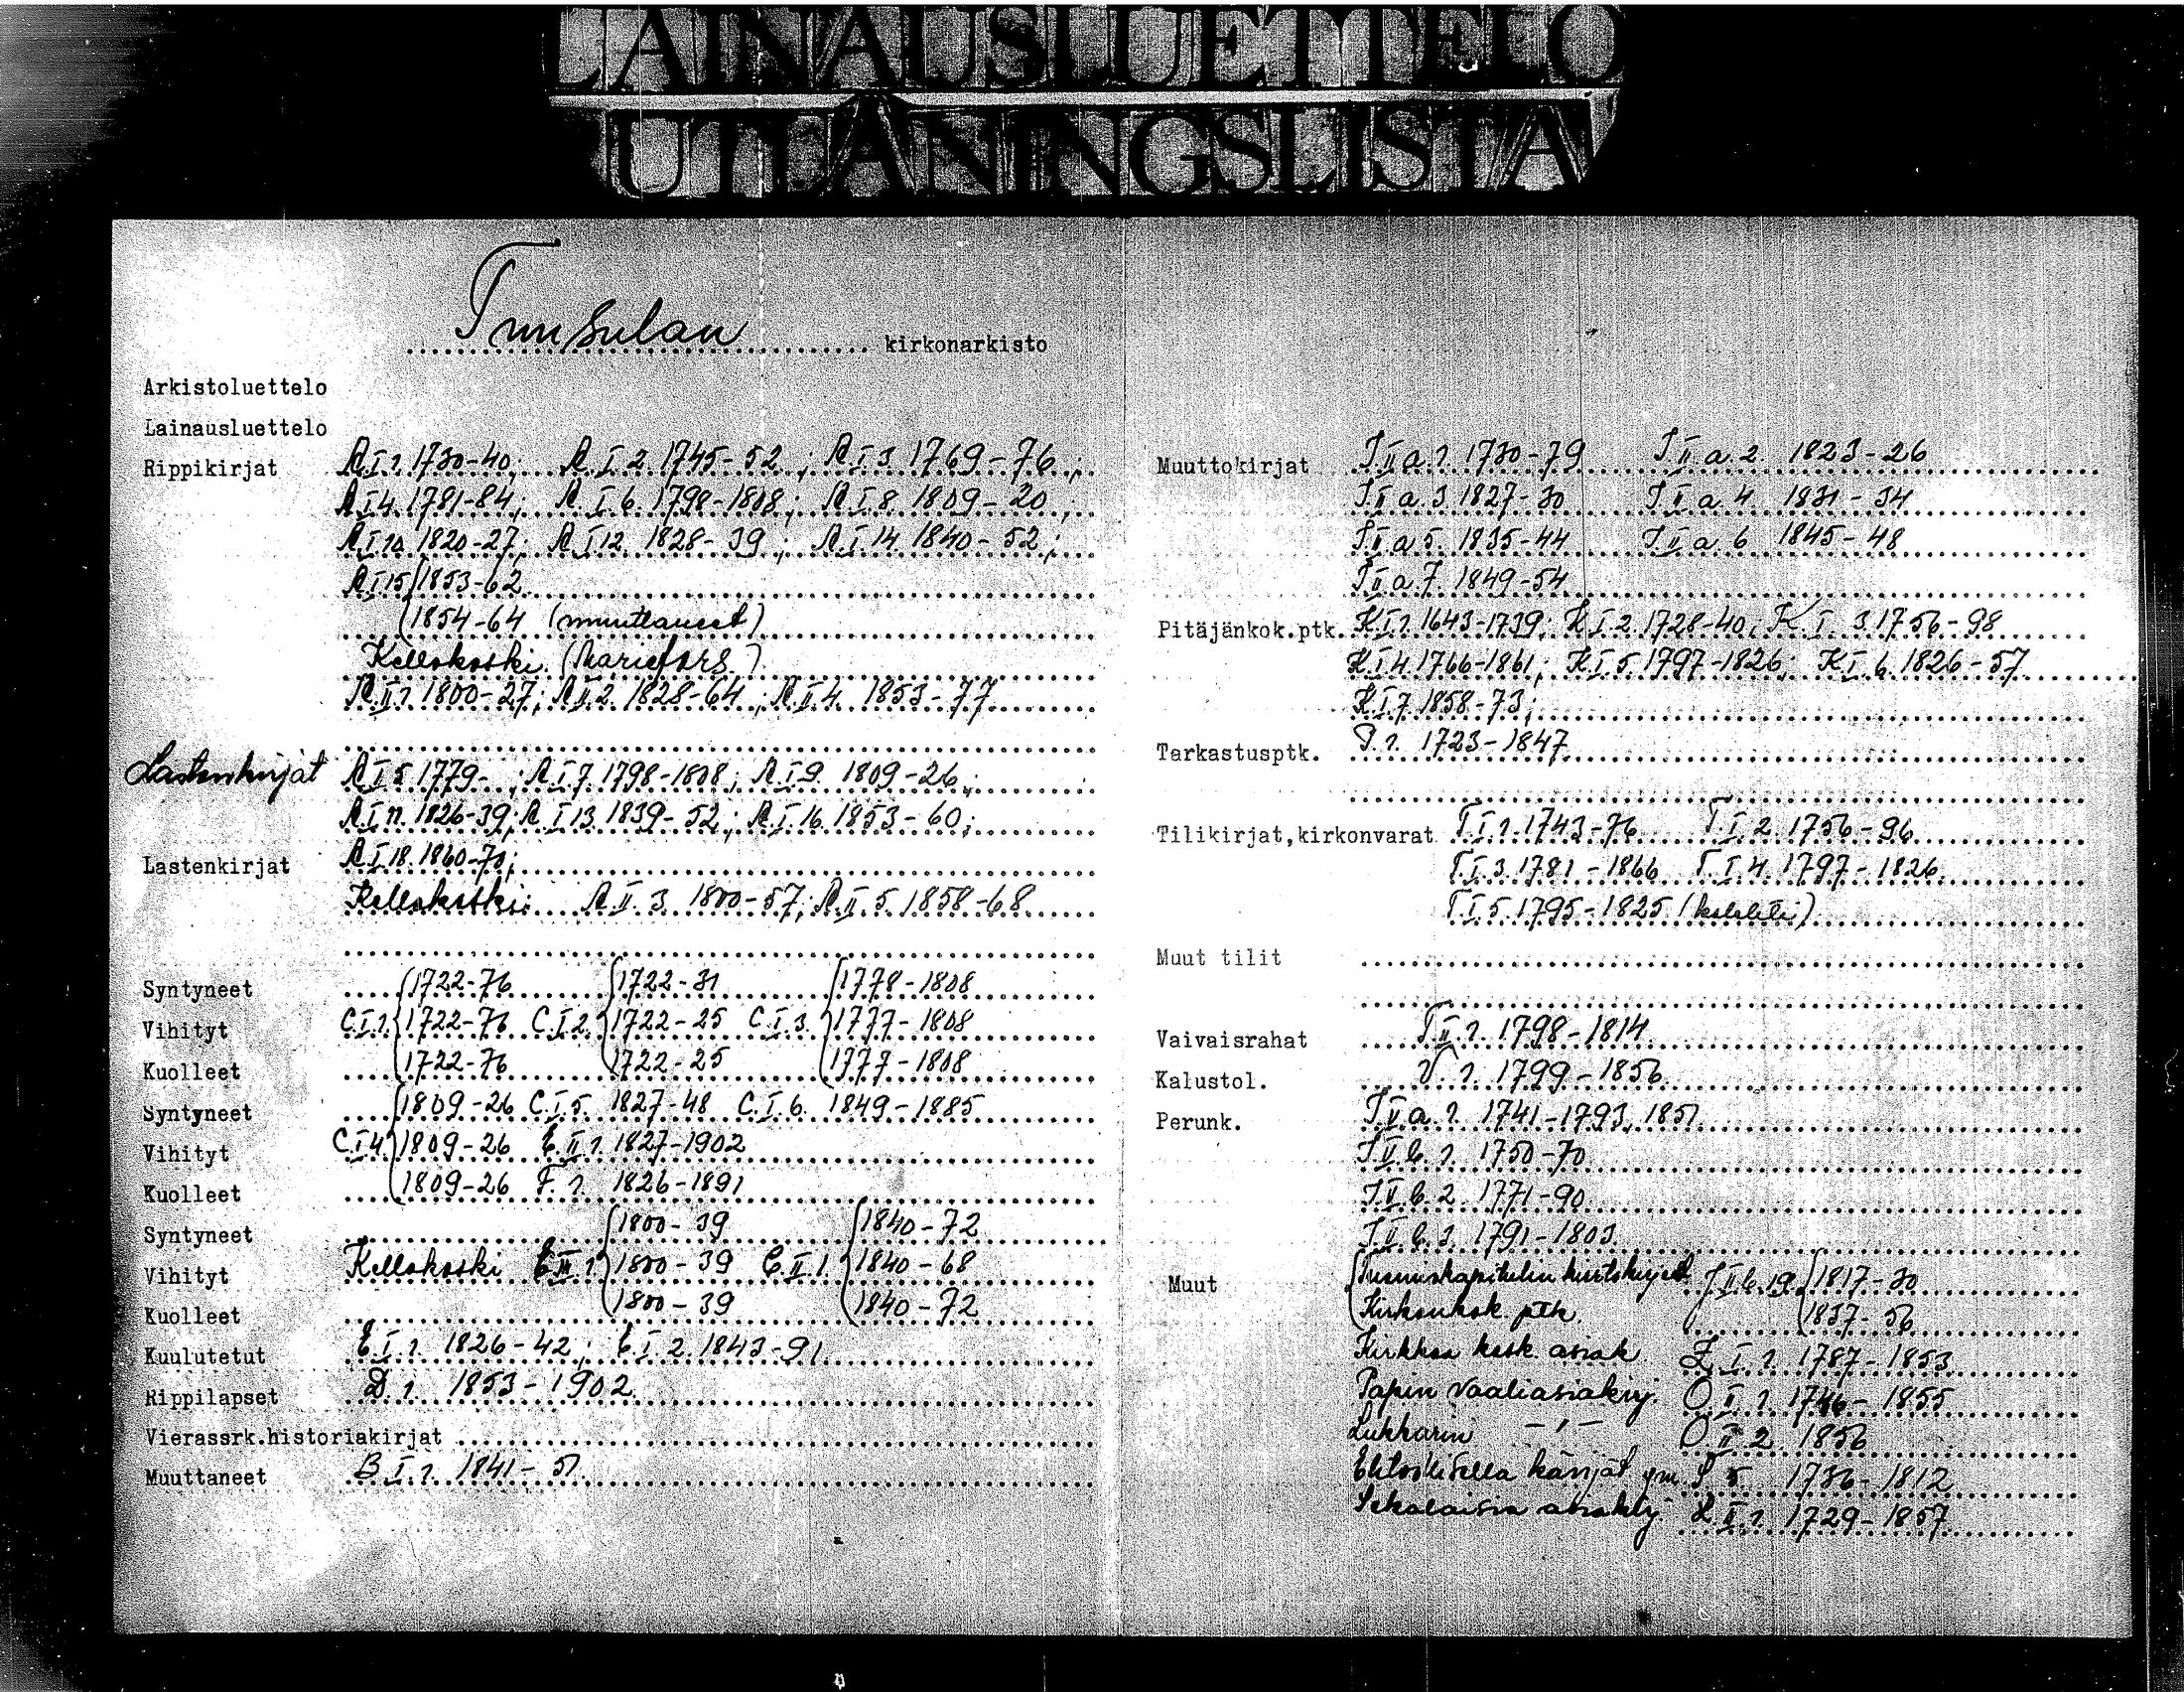 LAINAUSLUETTELO
UTLÅNINGSLISTA
Tuusulan kirkonarkisto
Arkistoluettelo
Lainausluettelo
Rippikirjat A.I.1. 1730-40; A.I.2. 1745-52; A.I.3. 1769-76;
A.I.4. 1781-84; A.I.6. 1798-1808; A.I.8. 1809-20;
A.I.10. 1820-27; A.I.12. 1828-39; A.I.14. 1840-52;
A.I.15 1853-62
1854-64 (muuttaneet)
Kellokoski (Mariefors)
A.II.1. 1800-27; A.II.2. 1828-64; A.II.4. 1853-77
Lastenkirjat A.I.5. 1779- ; A.I.7. 1798-1808; A.I.9. 1809-26;
A.I.11. 1826-39; A.I.13. 1839-52; A.I.16. 1853-60;
Lastenkirjat A.I.18. 1860-70;
Kellokoski: A.II.3. 1800-57; A.II.5. 1858-68
Syntyneet 1722-76 1722-31 1778-1808
Vihityt C.I.1. 1722-76 C.I.2. 1722-25 C.I.3. 1777-1808
Kuolleet 1722-76 1722-25 1777-1808
Syntyneet 1809-26 C.I.5. 1827-48 C.I.6. 1849-1885
Vihityt C.I.4. 1809-26 E.II.1. 1827-1902
Kuolleet 1809-26 F.1. 1826-1891
Syntyneet 1800-39 1840-72
Vihityt Kellokoski 1800-39 C.II.1. 1840-68
Kuolleet 1800-39 1840-72
Kuulutetut E.I.1. 1826-42; E.I.2. 1843-91
Rippilapset D.1. 1853-1902
Vierassrk.historiakirjat
Muuttaneet B.I.1. 1841-51
Muuttokirjat J.II.a.1. 1730-79 J.II.a.2. 1823-26
J.II.a.3. 1827-30 J.II.a.4. 1831-34
J.II.a.5. 1835-44 J.II.a.6. 1845-48
J.II.a.7. 1849-54
Pitäjänkok.ptk. K.I.1. 1643-1739; K.I.2. 1728-40; K.I.3. 1756-98
K.I.4. 1766-1861; K.I.5. 1797-1826; K.I.6. 1826-57
K.I.7. 1858-73;
Tarkastusptk. 1723-1847
Tilikirjat,kirkonvarat T.I.1. 1743-76 T.I.2. 1756-96
T.I.3. 1781-1866 T.I.4. 1797-1826
T.I.5. 1795-1825
Muut tilit
Vaivaisrahat T.II.1. 1798-1814
Kalustol. V.1. 1799-1856
Perunk. 1741-1793, 1851
1750-70
1771-90
1791-1803
Muut Tuomiokapitulin kiertokirjeet 1817-30
Kirkonkok. ptk. 1837-56
Kirkkoa kosk. asiak. 1787-1853
Papin vaaliasiakirj. O.I.1. 1746-1855
Lukkarin -"- O.I.2. 1856
käräjät ym. 1736-1812
Sekalaisia asiakirj. 1729-1857